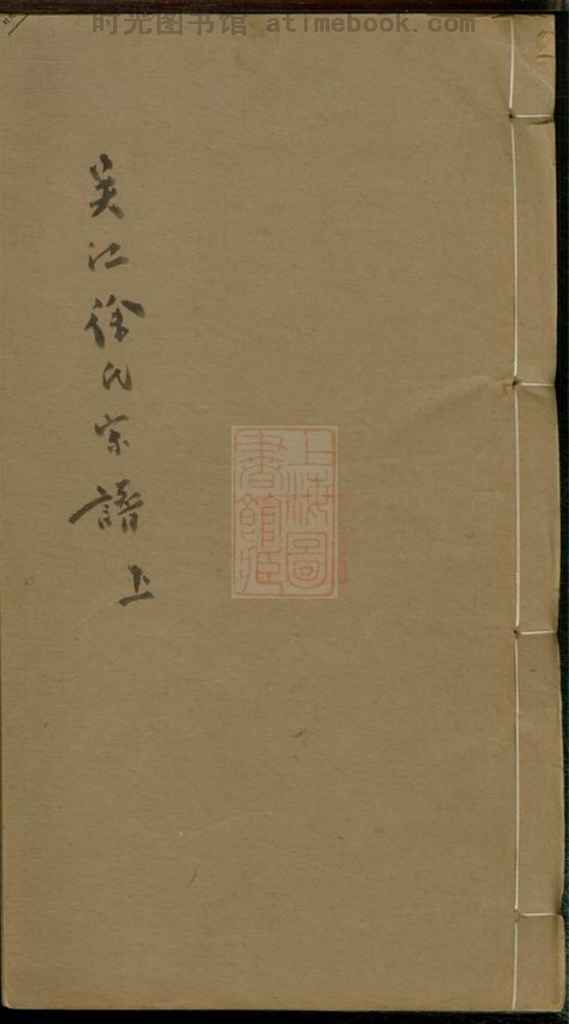 时光图书馆 atimebook.com
吴江徐氏宗譜
上
上海圖
書館藏